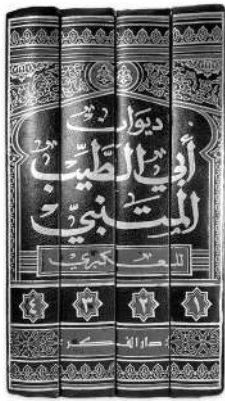 ديوان
أبي الطيب
المتنبي
للعكبري
١ ٢ ٣ ٤
دار الفكر